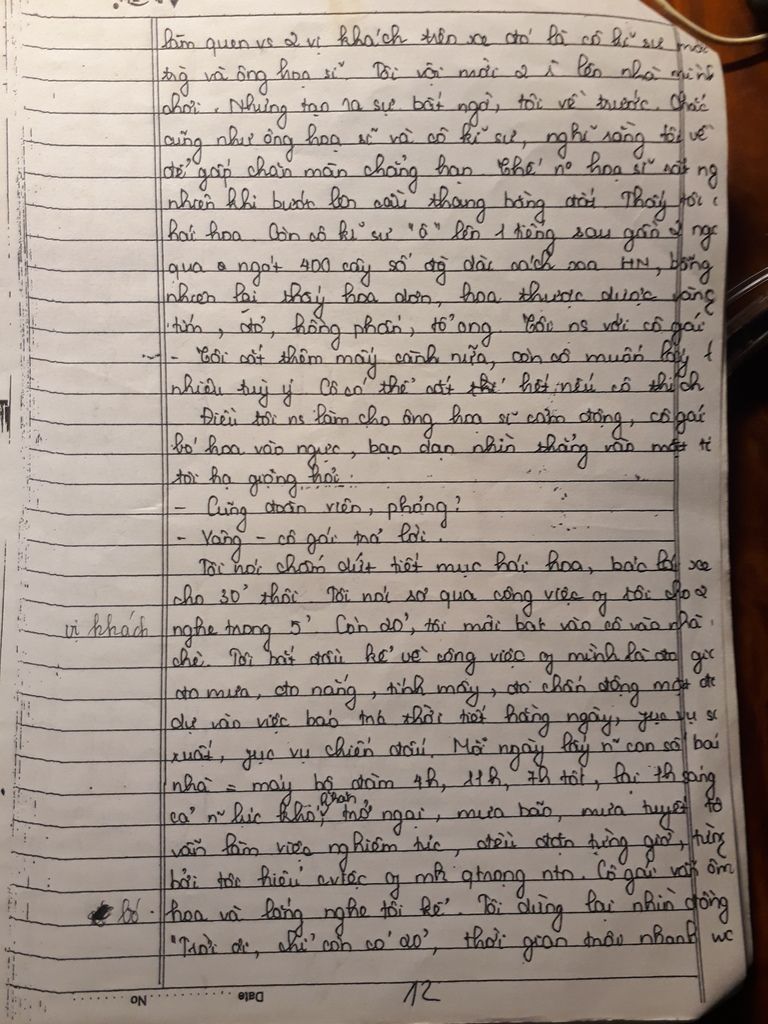 làm quen vs 2 vị khách trên xe đó là cô kĩ sư mới
trg và ông hoạ sĩ. Tôi vội mời 2 lên nhà mình
chơi. Nhưng tạo ra sự bất ngờ, tôi về trước. Chắc
cũng như ông hoạ sĩ và cô kĩ sư, nghĩ rằng tôi về
để gấp chăn màn chẳng hạn. Thế nº hoạ sĩ rất ng
nhiên khi bước lên cầu thang bằng đất. Thấy tôi
hái hoa. Còn cô kĩ sư "ô" lên 1 tiếng sau gần 2 ngà
qua ngót 400 cây số đg dài cách xa HN, bỗng
nhiên lại thấy hoa dơn, hoa thược dược vàng
tím, đỏ, hồng phấn, tổ ong. Tôi ns với cô gái
- Tôi cắt thêm mấy cành nữa, còn cô muốn lấy
nhiêu tuỳ ý. Cô có thể cắt hết nếu cô thích
Điều tôi ns làm cho ông hoạ sĩ cảm động, cô gái
bó hoa vào ngực, bạo dạn nhìn thẳng vào mắt
tôi hạ giọng hỏi:
- Cũng đoàn viên, phỏng?
- Vâng - cô gái trả lời.
Tôi nói chấm dứt tiết mục hái hoa, bác lái xe
cho 30' thôi. Tôi nói sơ qua công việc of tôi cho 2
vị khách nghe trong 5'. Còn 20', tôi mời bác vào cô vào nhà
chè. Tôi bắt đầu kể về công việc of mình là đo gió
đo mưa, đo nắng, tính mây, đo chấn động mặt đ
dự vào việc báo trc thời tiết hằng ngày, phục vụ s
xuất, phục vụ chiến đấu. Mỗi ngày lấy n~ con số báo
nhà = máy bộ đàm 4h, 11h, 7h tối, lại 1h sáng
cả n~ lúc khó khăn trở ngại, mưa bão, mưa tuyết tô
vẫn làm việc nghiêm túc, đều đặn từng giờ, từng
bởi tôi hiểu cviệc of mk qtrọng ntn. Cô gái vẫn ôm
bó hoa và lắng nghe tôi kể. Tôi dừng lại nhìn đồng
"Trời ơi, chỉ còn có 20', thời gian trôi nhanh
12
Date
No